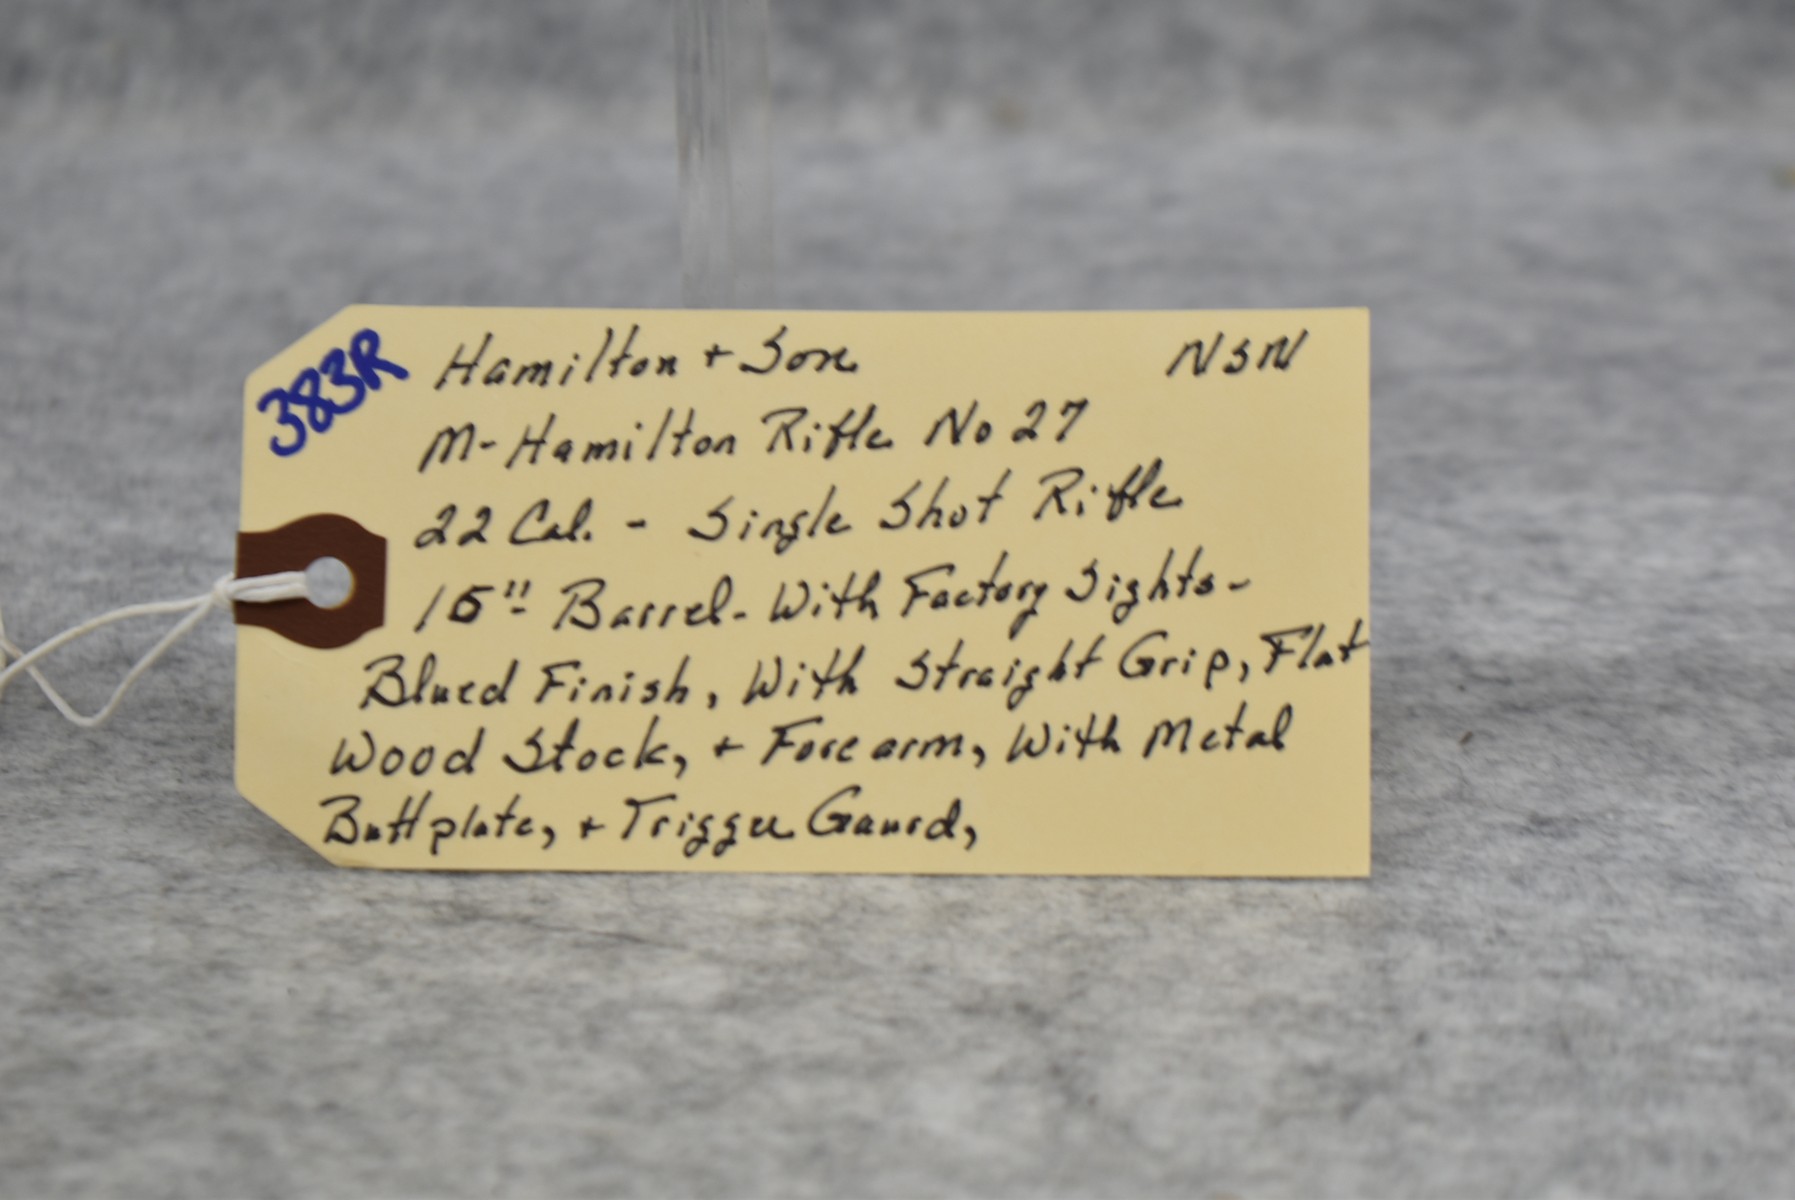 383R
Hamilton + Son NSN
M- Hamilton Rifle No 27
22 Cal. - Single Shot Rifle
15" Barrel - With Factory Sights -
Blued Finish, With Straight Grip, Flat
Wood Stock, + Forearm, With Metal
Buttplate, + Trigger Gaurd,